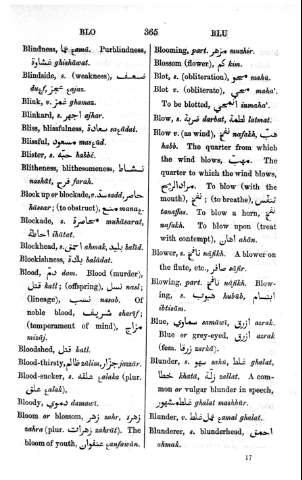 BLO 365 BLU
Blindness, عما ɛamā. Purblindness,
غشاوة ghishāwat.
Blindside, s. (weakness), ضعف
ḍuɛf, عجز ɛajaz.
Blink, v. غمز ghamaz.
Blinkard, s. اجهر ajhar.
Bliss, blissfulness, سعادة saɛādat.
Blissful, مسعود masɛūd.
Blister, s. حبّة habbé.
Blitheness, blithesomeness, نشاط
nashāṭ, فرح farah.
Block up or blockade, v. سدّ sadd, حاصر
hāsar; (to obstruct), منع manaɛ.
Blockade, s. محاصرة muhāsarat,
احاطة ihāṭat.
Blockhead, s. احمق ahmak, بليد balīd.
Blockishness, بلادة balādat.
Blood, دم dom. Blood (murder),
قتل katl; (offspring), نسل nasl;
(lineage), نسب nasab. Of
noble blood, شريف sharīf;
(temperament of mind), مزاج
mizāj.
Bloodshed, قتل katl.
Blood-thirsty, ظالم zālim, جزّار jazzār.
Blood-sucker, s. علقة ɛalaka (plur.
علق ɛalak).
Bloody, دموي damawī.
Bloom or blossom, زهر zahr, زهرة
zahra (plur. زهرات zahrāt). The
bloom of youth, عنفوان ɛunfawān.
Blooming, part. مزهر muzhir.
Blossom (flower), كم kim.
Blot, s. (obliteration), محو mahū.
Blot v. (obliterate), محى maha'.
To be blotted, انمحى inmaha'.
Blow, s. ضربة darbat, لطمة latmat.
Blow v. (as wind), نفخ nafakh, هبّ
habb. The quarter from which
the wind blows, مهبّ. The
quarter to which the wind blows,
مراد الريح. To blow (with the
mouth), نفخ; (to breathe), تنفّس
tanaffas. To blow a horn, نفخ
nafakh. To blow upon (treat
with contempt), اهان ahān.
Blower, s. نافخ nāfikh. A blower on
the flute, etc., صافر sāfir.
Blowing, part. نافخ nāfikh. Blow-
ing, s. هبوب hubūb, ابتسام
ibtisām.
Blue, سماوي samāwī, ازرق azrak.
Blue or grey-eyed, ازرق azrak
(fem. زرقا zarkā).
Blunder, s. سهو saho, غلط ghalat,
خطا khatā, زلة zallat. A com-
mon or vulgar blunder in speech,
غلط مشهور ghalat mashhūr.
Blunder, v. عمل غلط ɛamal ghalat.
Blunderer, s. blunderhead, احمق
ahmak.
17